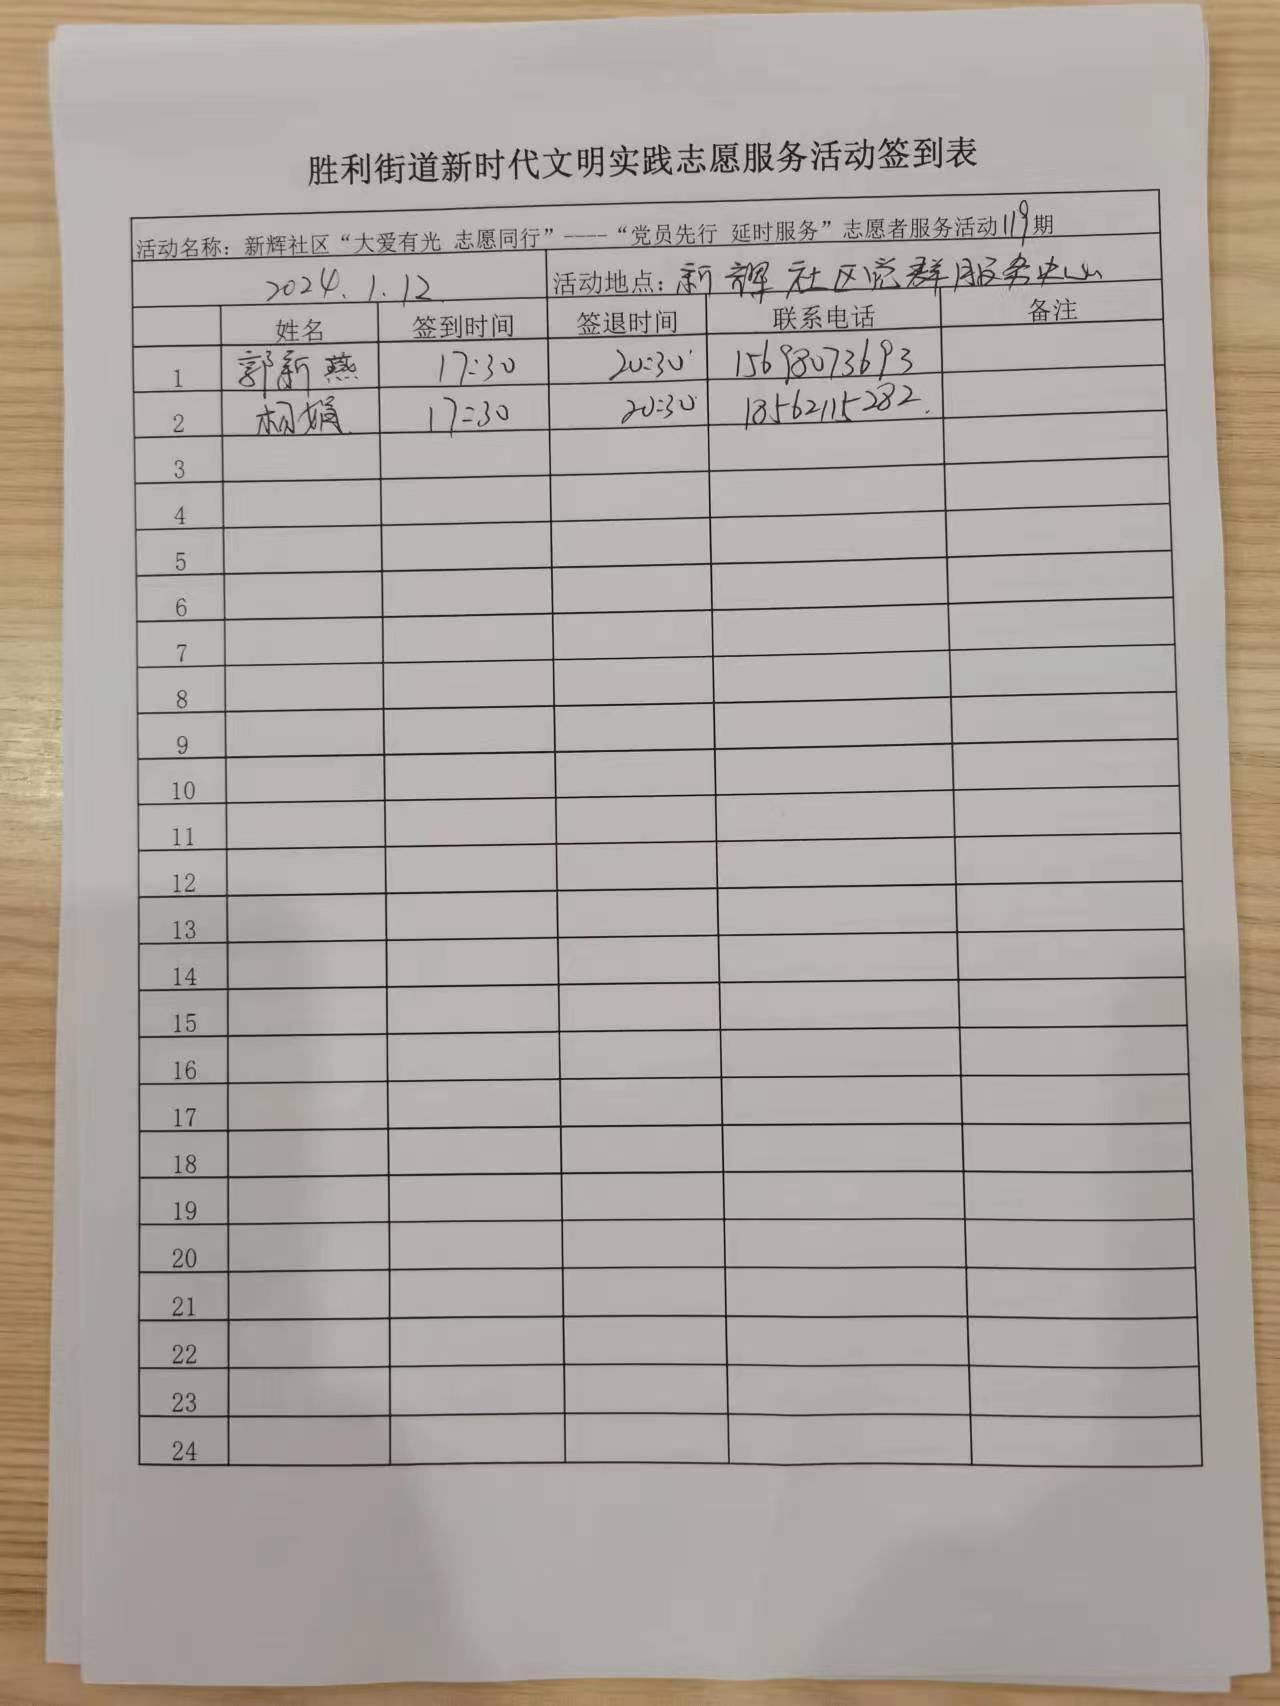 胜利街道新时代文明实践志愿服务活动签到表
活动名称：新辉社区“大爱有光 志愿同行”----“党员先行 延时服务”志愿者服务活动119期
2024.1.12. 活动地点：新辉社区党群服务中心
姓名 签到时间 签退时间 联系电话 备注
1 郭新燕 17:30 20:30 15698073693
2 娟 17:30 20:30 18562115282.
3
4
5
6
7
8
9
10
11
12
13
14
15
16
17
18
19
20
21
22
23
24